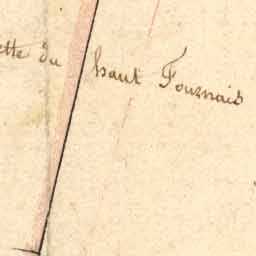 ette du haut Fournais